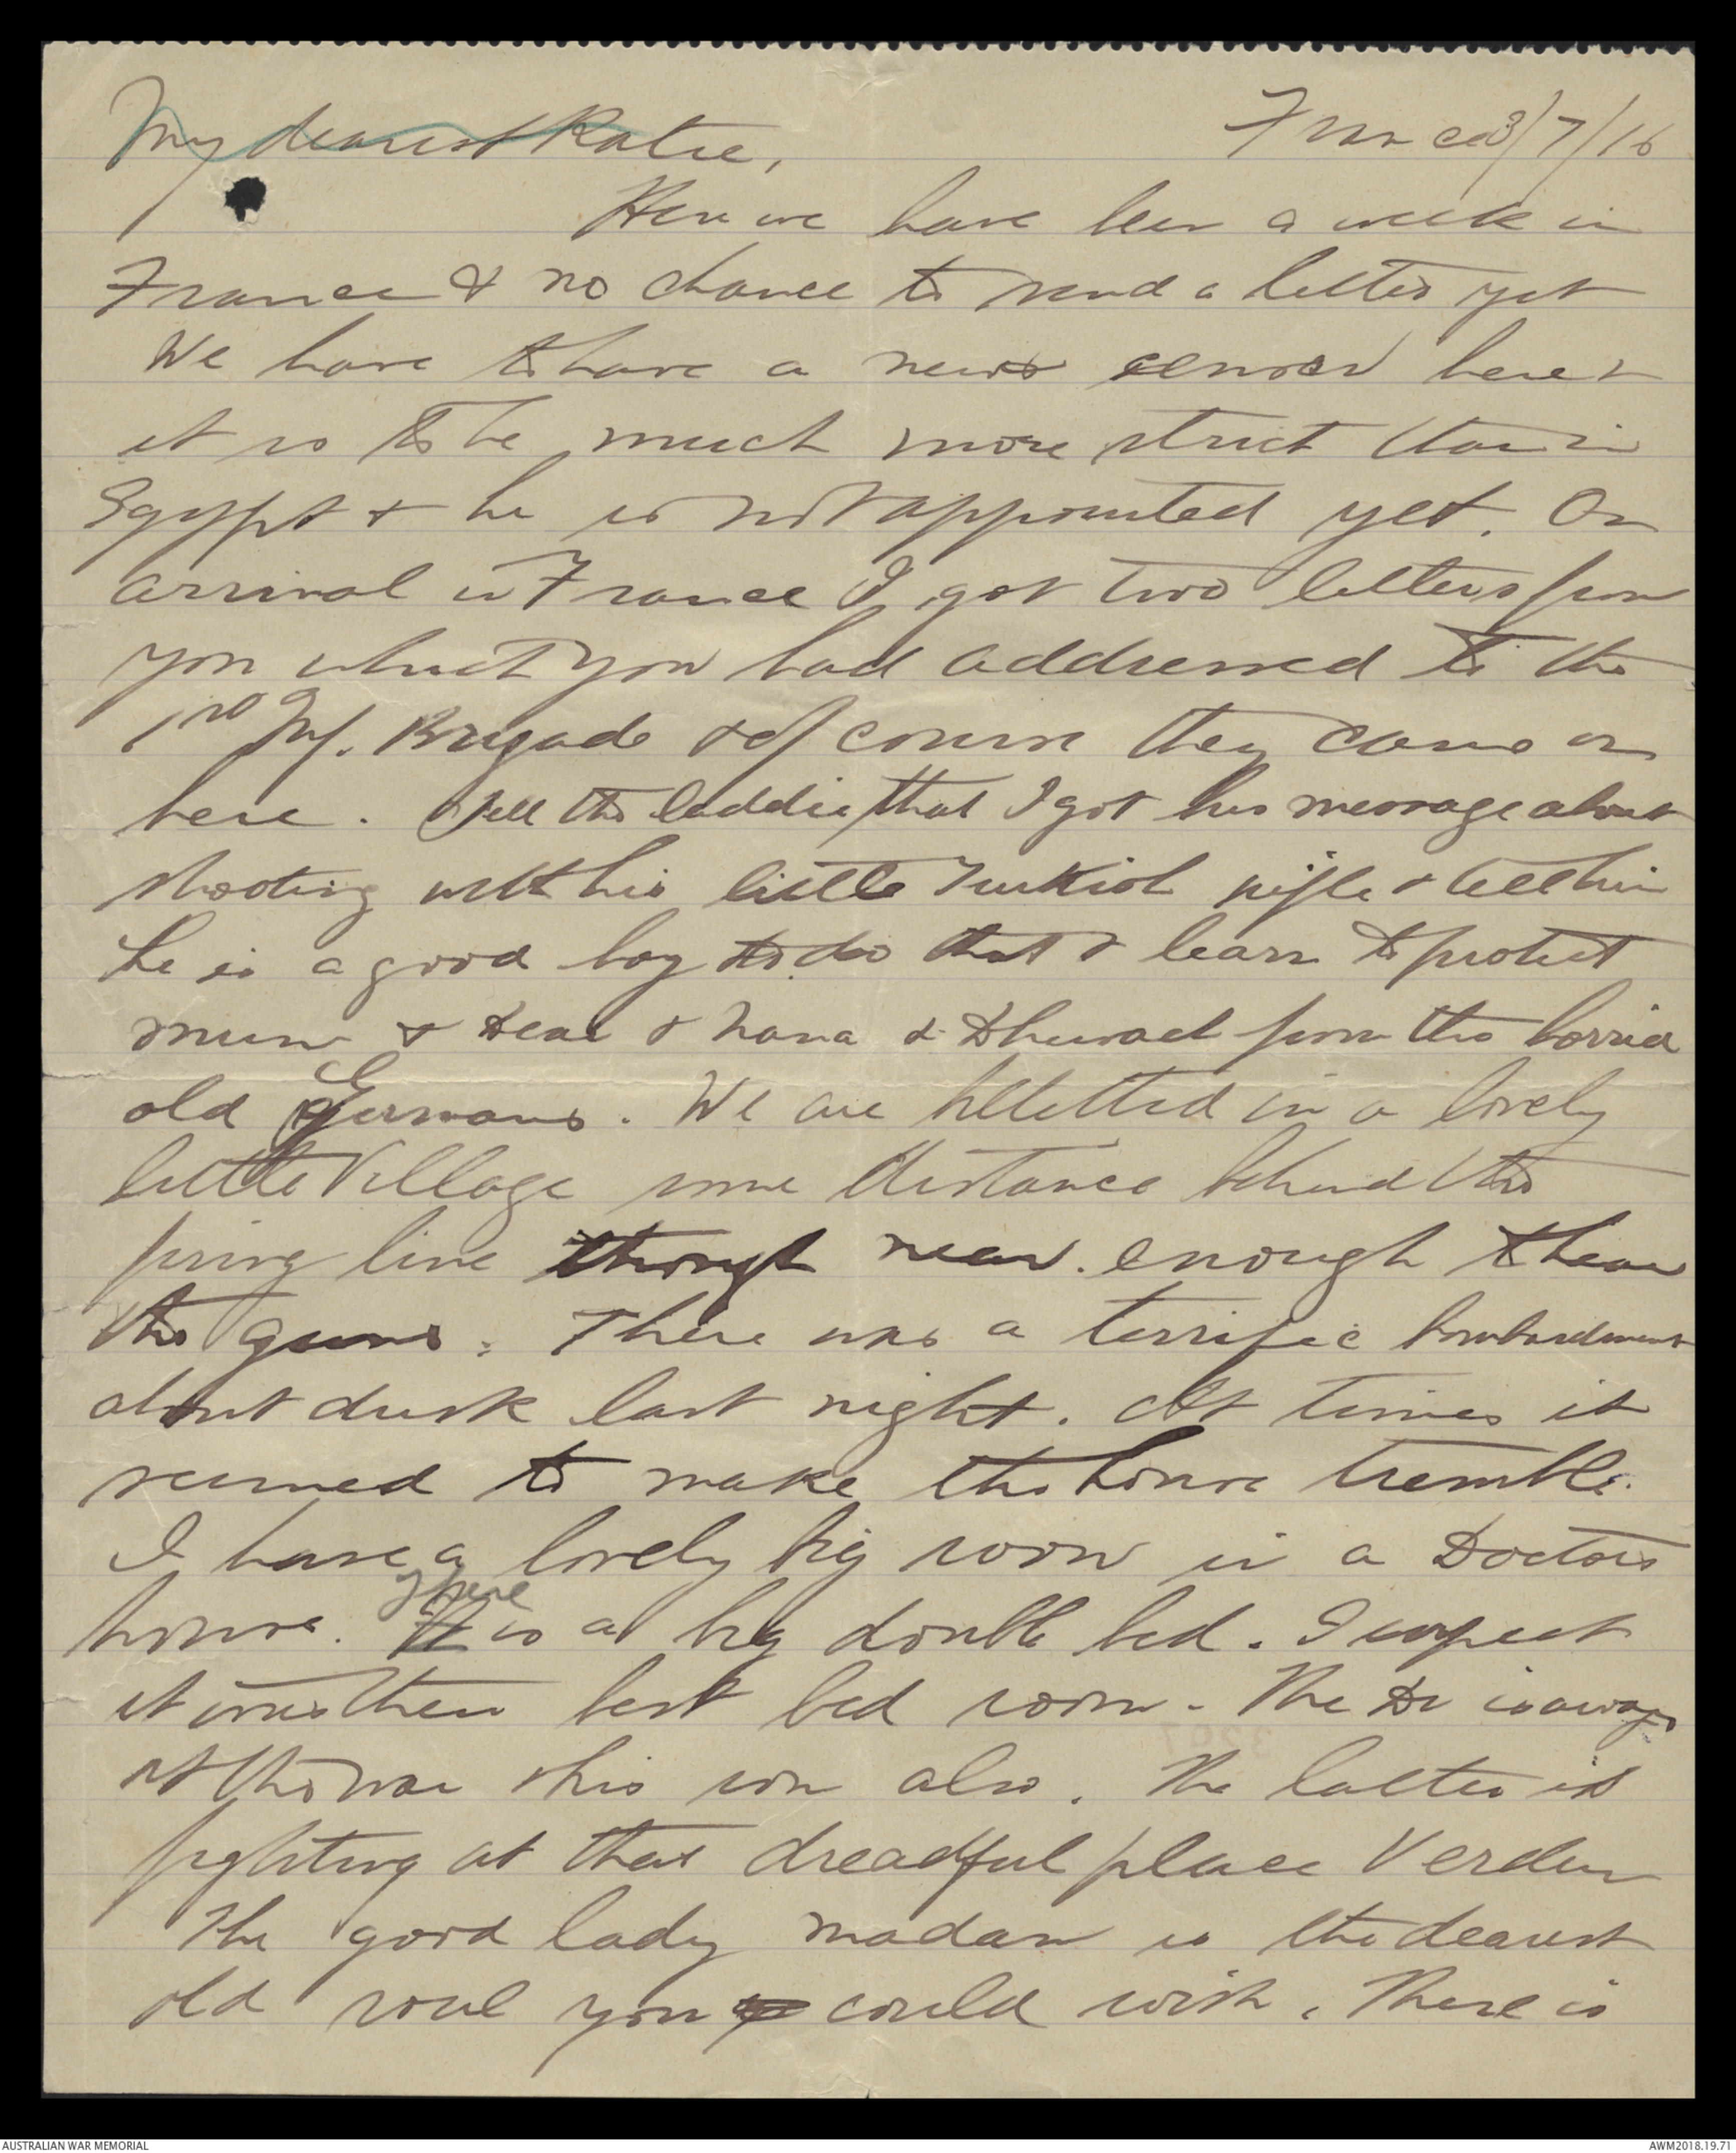 My dearest Katie, France 3/7/16
Here we have been a week in
France & no chance to send a letter yet
We have to have a new censor here &
it is to be much more strict than in
Egypt & he is not appointed yet. On
arrival in France I got two letters from
you which you had addressed to the
1st Inf. Brigade & of course they came on
here. Tell the laddie that I got his message about
shooting with his little Turkish rifle & tell him
he is a good boy to do that & learn to protect
mum & Dear & Nana & from the horrid
old Germans. We are billetted in a lovely
little Village some distance behind the
firing line though near enough to hear
the guns. There was a terrific bombardment
about dusk last night. At times it
seemed to make the house tremble.
I have a lovely big room in a Doctors
house. There is a big double bed. I suspect
it was their best bed room. The Dr is away
at the war & his son also. The latter is
fighting at that dreadful place Verdun
The good lady madam is the dearest
old soul you could wish. There is
AUSTRALIAN WAR MEMORIAL
AWM2018.19.71